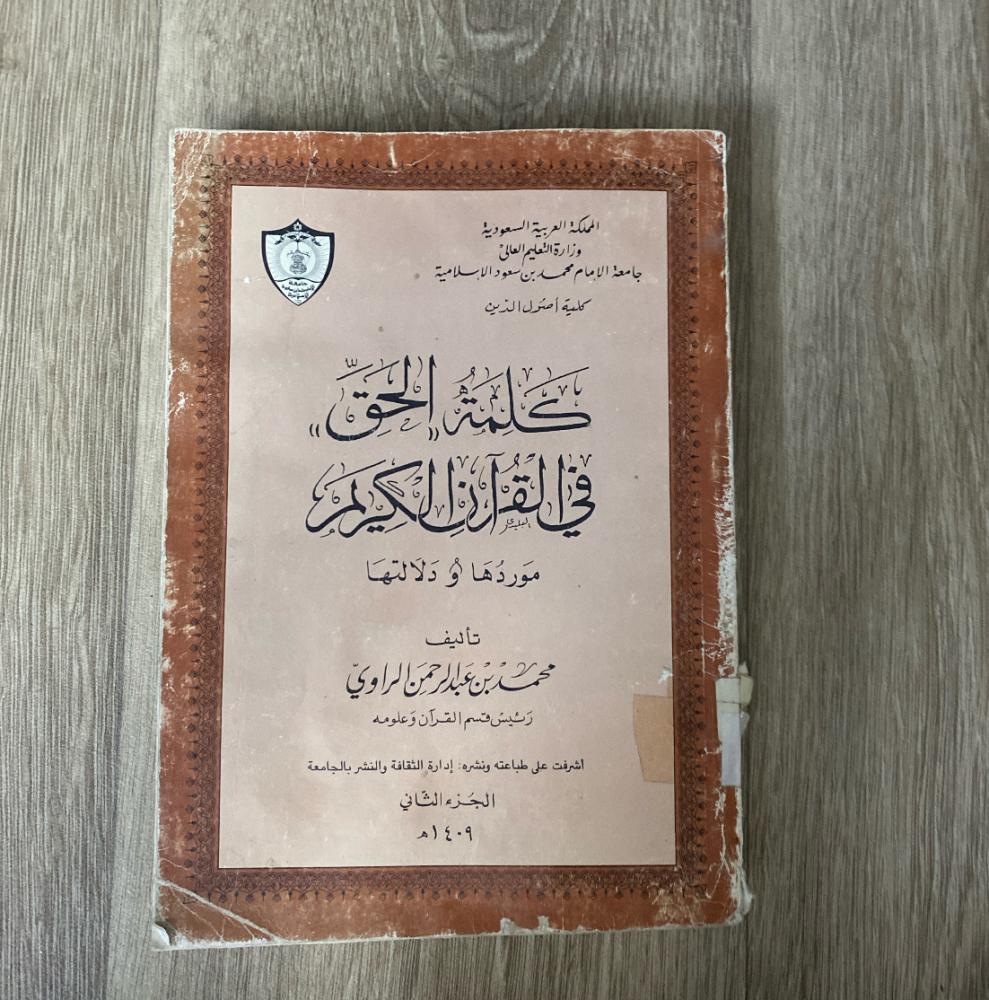 المملكة العربية السعودية
وزارة التعليم العالي
جامعة الإمام محمد بن سعود الإسلامية
كلية أصول الدين
كَلِمَةُ «الحَقِّ»
في القُرآنِ الكَرِيمِ
مَوردُهَا وَ دَلَالتهَا
تأليف
محمد بن عبد الرحمن الراوي
رئيس قسم القرآن وعلومه
أشرفت على طباعته ونشره: إدارة الثقافة والنشر بالجامعة
الجزء الثاني
١٤٠٩هـ